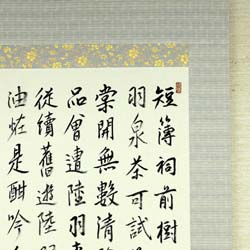 短簿祠前樹
羽泉茶可試
棠開無數清
品曾遭陸羽
從續舊遊陸
是酣吟